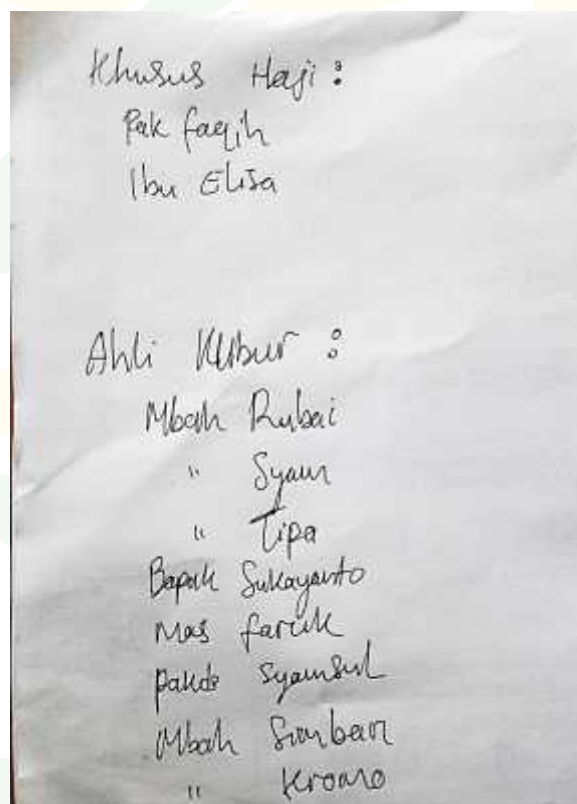 Khusus Haji :
Pak faqih
Ibu Elisa
Ahli Kubur :
Mbah Rubai
" Syam
" Tipa
Bapak Sukayanto
Mas faruk
pakde Syamsul
Mbah Simbar
" Kromo